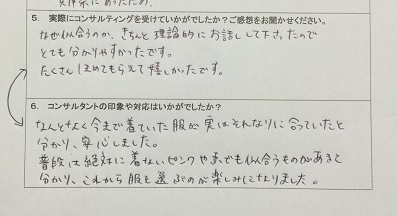 5. 実際にコンサルティングを受けていかがでしたか？ご感想をお聞かせください。
なぜ似合うのか、きちんと理論的にお話して下さったので
とても分かりやすかったです。
たくさんほめてもらえて嬉しかったです。
6. コンサルタントの印象や対応はいかがでしたか？
なんとなく今まで着ていた服が実はそれなりに合っていたと
分かり、安心しました。
普段は絶対に着ないピンクや でも似合うものがあると
分かり、これから服を選ぶのが楽しみになりました。